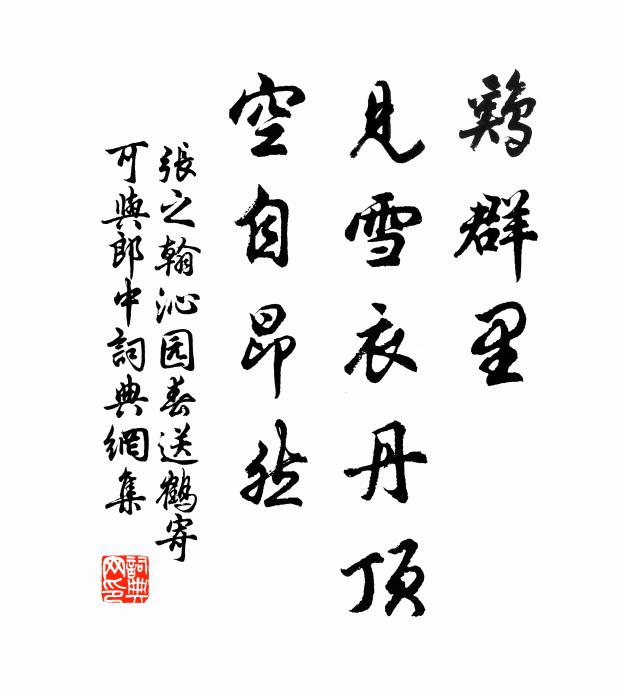 鷄群里
見雪衣丹頂
空自昂然
張之翰沁园春送鶴寄
可與郎中詞典網集
詞典
网印